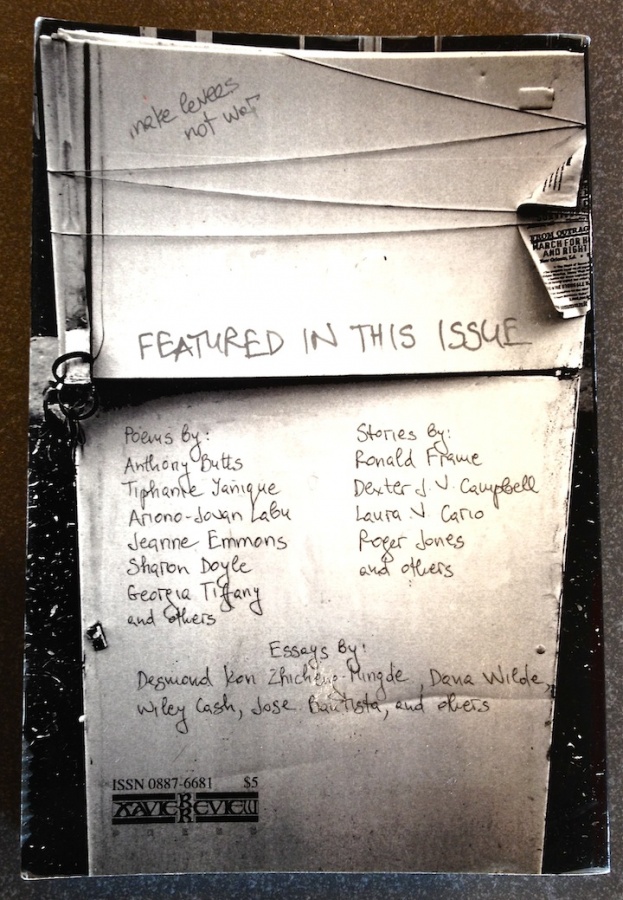 make levees
not war
FROM OUTRAGE
MARCH FOR H
AND RIGHT
New Orleans, La.
FEATURED IN THIS ISSUE
Poems By:
Anthony Butts
Tiphanie Yanique
Ariono-Jovan Labu
Jeanne Emmons
Sharon Doyle
Georgia Tiffany
and others
Stories By:
Ronald Frame
Dexter J. V. Campbell
Laura V Cario
Roger Jones
and others
Essays By:
Desmond Kon Zhicheng-Mingde, Dana Wilde,
Wiley Cash, Jose Bautista, and others
ISSN 0887-6681 $5
XAVIER REVIEW
PRESS